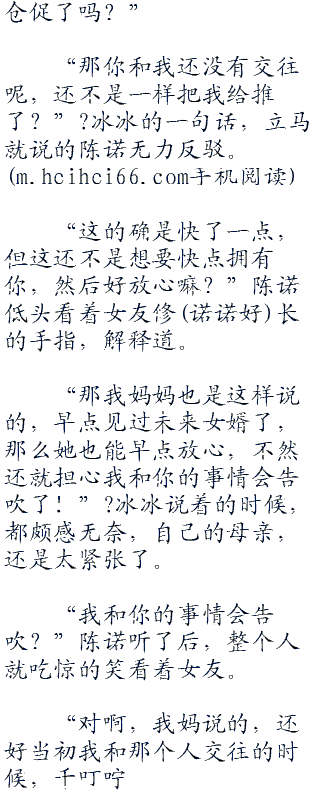 仓促了吗？”
“那你和我还没有交往
呢，还不是一样把我给推
了？”?冰冰的一句话，立马
就说的陈诺无力反驳。
(m.hcihci66.com手机阅读)
“这的确是快了一点，
但这还不是想要快点拥有
你，然后好放心嘛？”陈诺
低头看着女友修(诺诺好)长
的手指，解释道。
“那我妈妈也是这样说
的，早点见过未来女婿了，
那么她也能早点放心，不然
还就担心我和你的事情会告
吹了！”?冰冰说着的时候，
都颇感无奈，自己的母亲，
还是太紧张了。
“我和你的事情会告
吹？”陈诺听了后，整个人
就吃惊的笑看着女友。
“对啊，我妈说的，还
好当初我和那个人交往的时
候，千叮咛